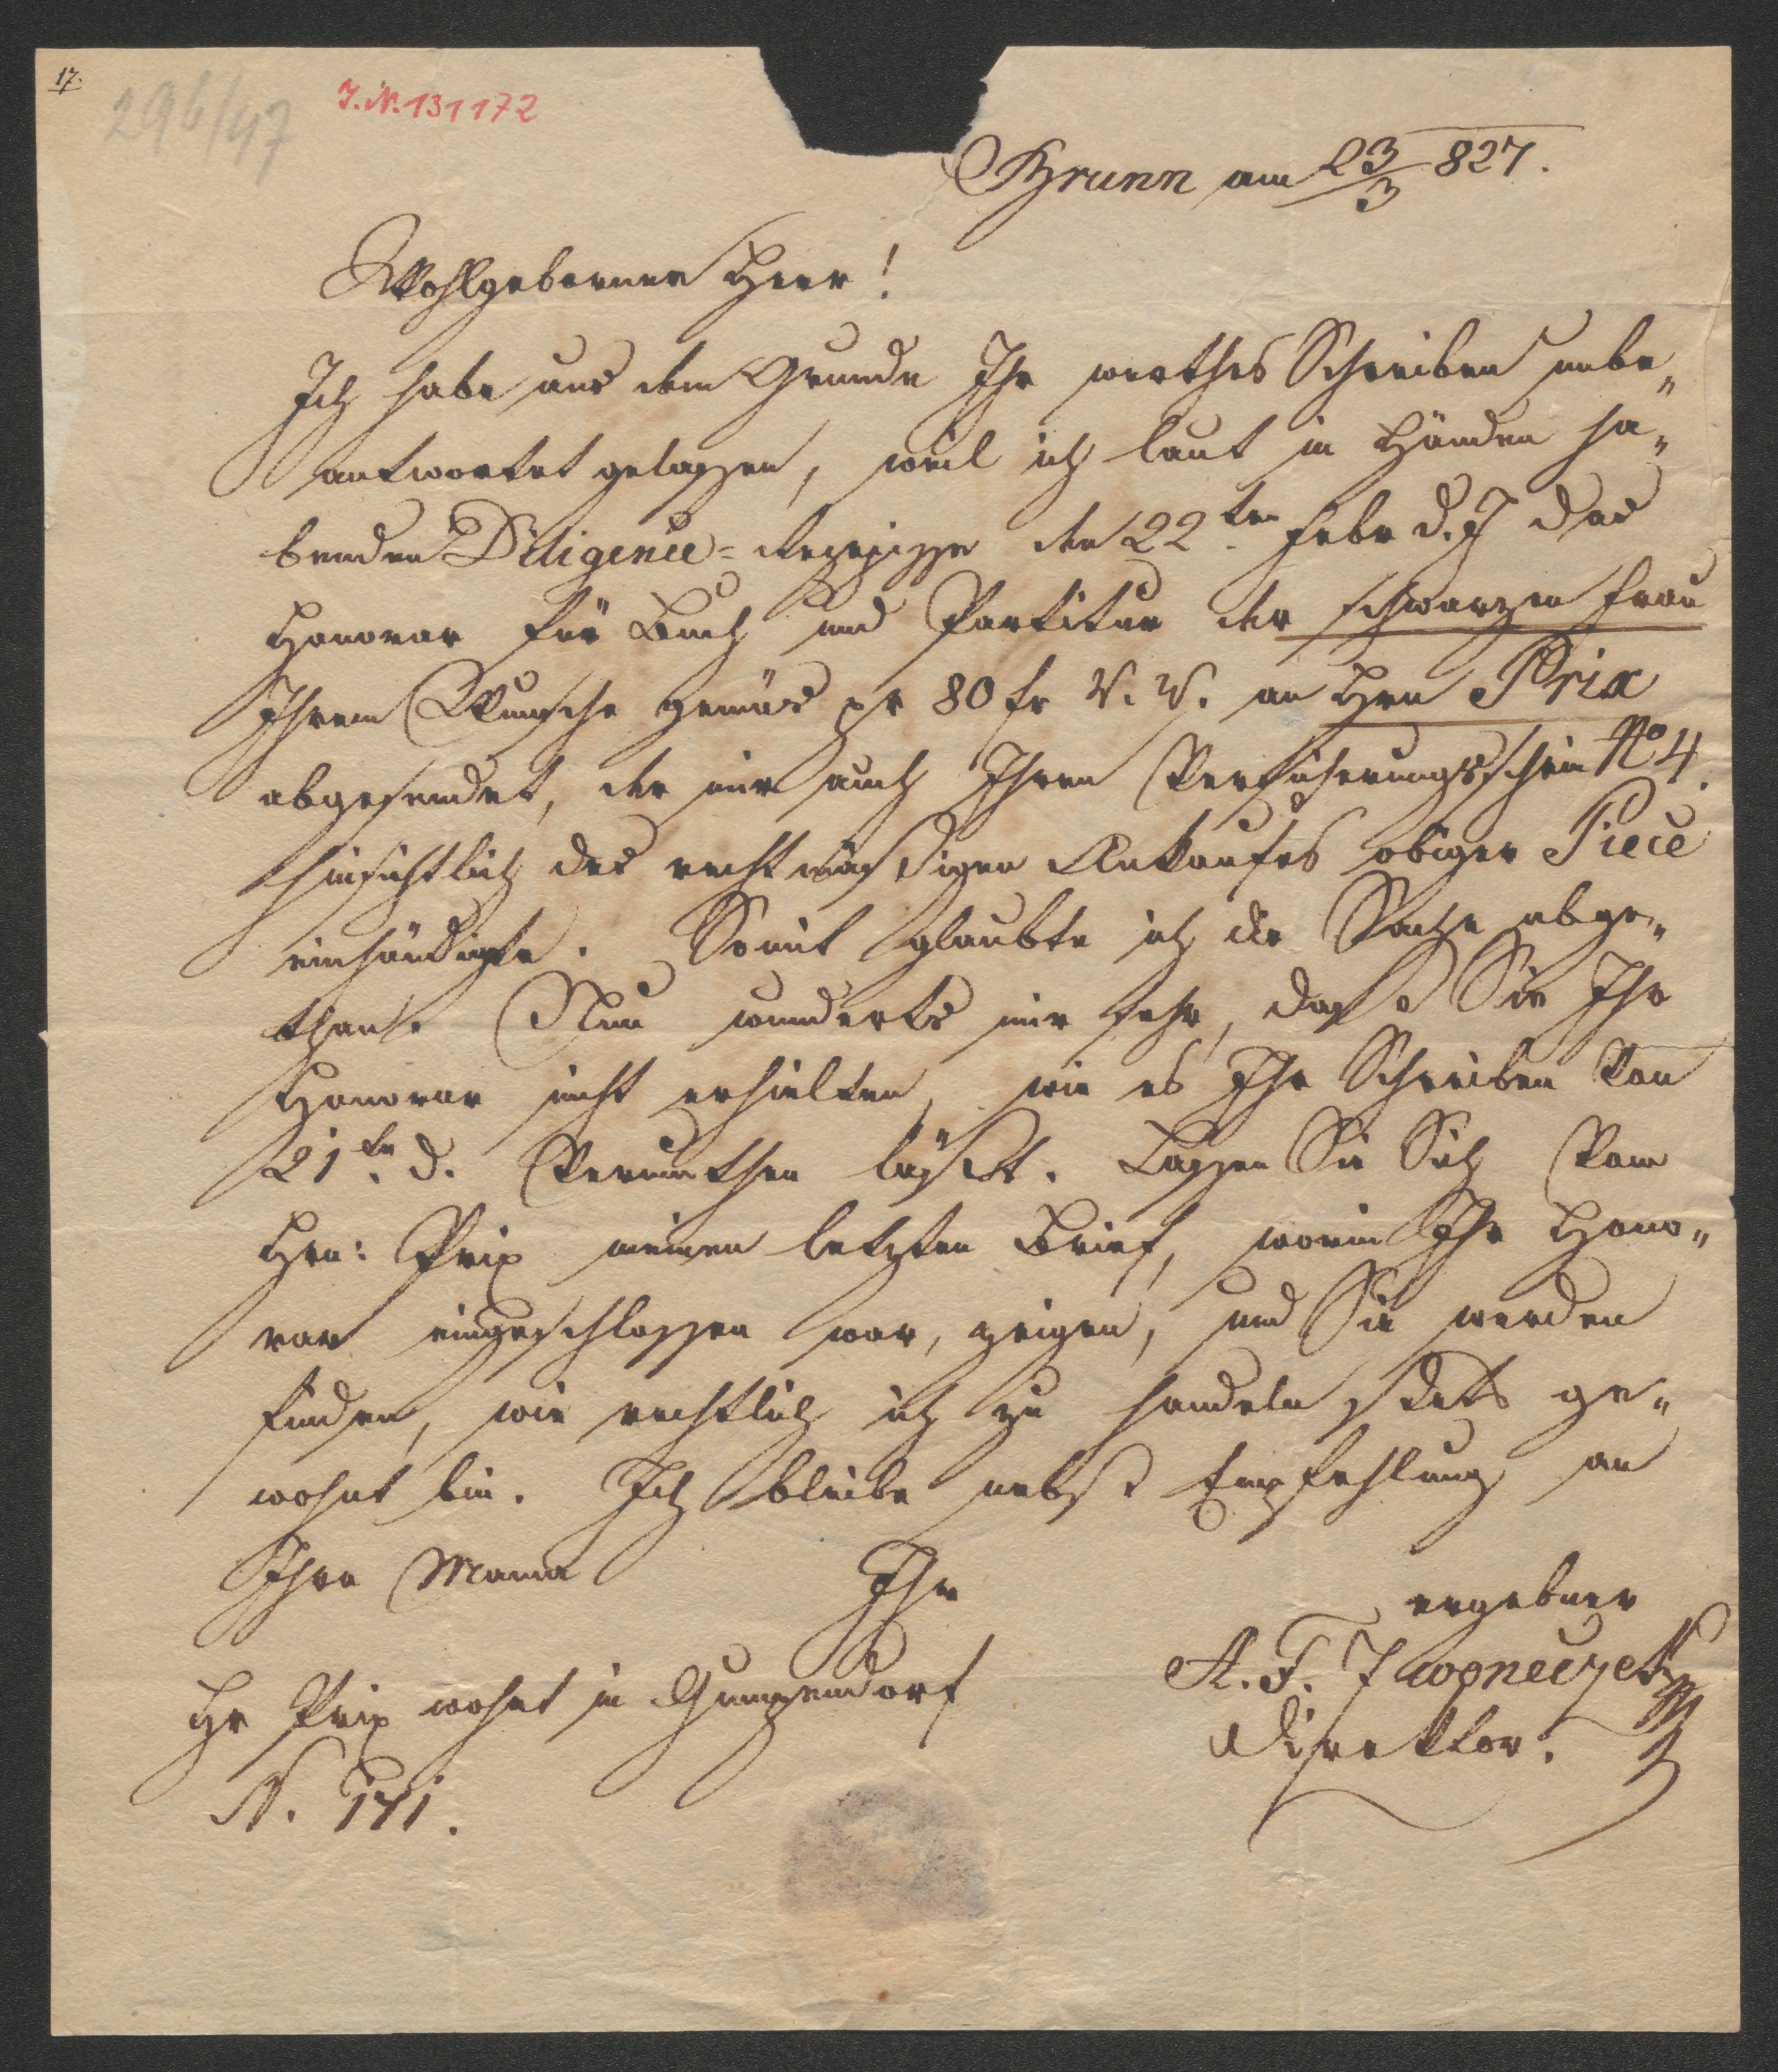 17.
296/47
I.N. 131172
Brünn am 23/3 827.
Wohlgeborner Herr!
Ich habe aus dem Grunde Ihr werthes Schreiben unbe„
antwortet gelassen, weil ich laut in Händen ha„
benden Diligence=Rezepisse den 22ten Febr d. J das
Honorar für Buch und Partitur der schwarzen Frau
Ihrem Wunsche gemäs pr 80 fr W. W. an Hrn Prix
abgesendet, der mir auch Ihren Versicherungsschein No 4.
hinsichtlich des rechtmäßigen Ankaufes obiger Piece
einhändigte. Somit glaubte ich die Sache abge„
than. Nun wunderts mir sehr, daß Sie Ihr
Honorar nicht erhielten, wie es Ihr Schreiben von
21tn d. vermuthen läßt. Lassen Sie Sich vom
Hrn: Prix meinen letzten Brief, worin Ihr Hono„
rar eingeschlossen war, zeigen, und Sie werden
finden, wie rechtlich ich zu handeln stets ge„
wohnt bin. Ich bleibe nebst Empfehlung an
Ihre Mama Ihr
ergebner
A. F. Zwoneczek
Direktor.
Hr Prix wohnt in Gumpendorf
N. 171.